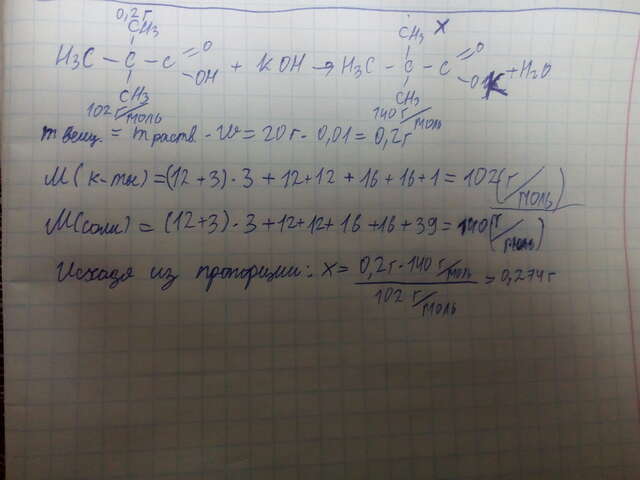 0,2 г X
CH3 CH3
H3C – C – C O OH + KOH → H3C – C – C O OK + H2O
CH3 CH3
102 г/моль 140 г/моль
m вещ. = m раств · W = 20 г · 0,01 = 0,2 г
M (к-ты) = (12 + 3) · 3 + 12 + 12 + 16 + 16 + 1 = 102 (г/моль)
M (соли) = (12+3) · 3 + 12 + 12 + 16 + 16 + 39 = 140 (г/моль)
Исходя из пропорции: x = 0,2 г · 140 г/моль / 102 г/моль = 0,274 г